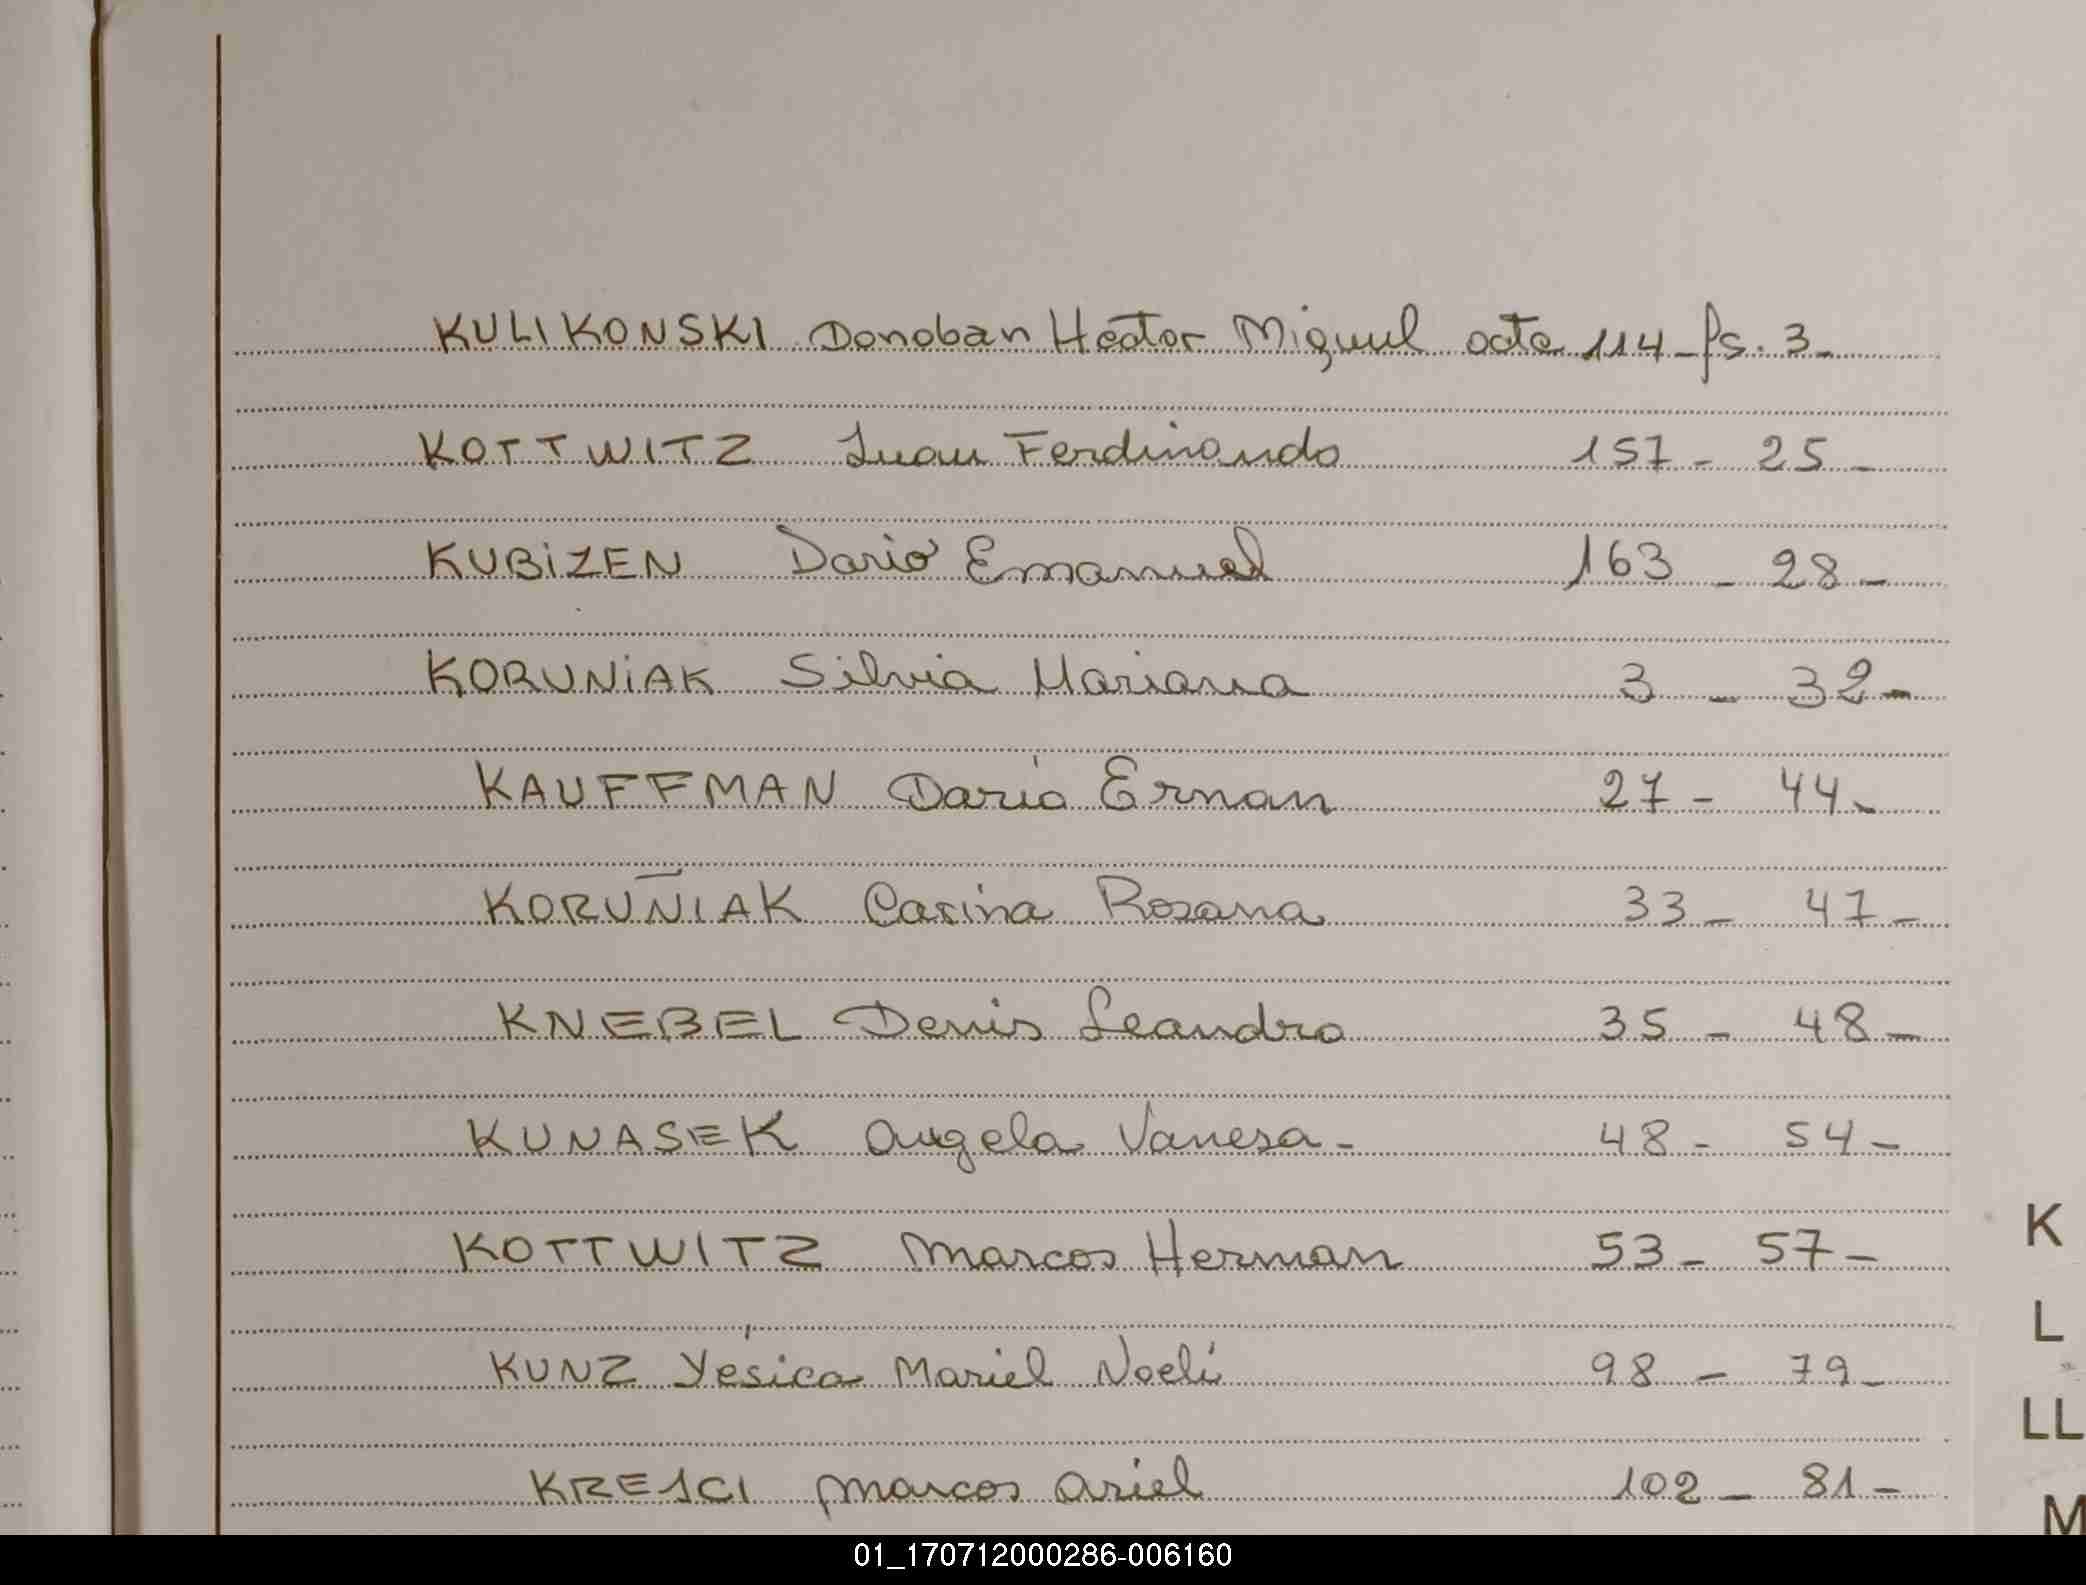 KULIKONSKI Donoban Héctor Miguel acta 114 - fs. 3 -
KOTTWITZ Juan Ferdinando 157 - 25 -
KUBiZEN Darío Emanuel 163 - 28 -
KORUNiAK Silvia Mariana 3 - 32 -
KAUFFMAN Darío Ernan 27 - 44 -
KORUÑIAK Carina Rosana 33 - 47 -
KNEBEL Denis Leandro 35 - 48 -
KUNASEK Angela Vanesa - 48 - 54 -
KOTTWITZ Marcos Herman 53 - 57 -
KUNZ Yésica Mariel Noelí 98 - 79 -
KREJCI Marcos Ariel 102 - 81 -
K
L
LL
M
01_170712000286-006160